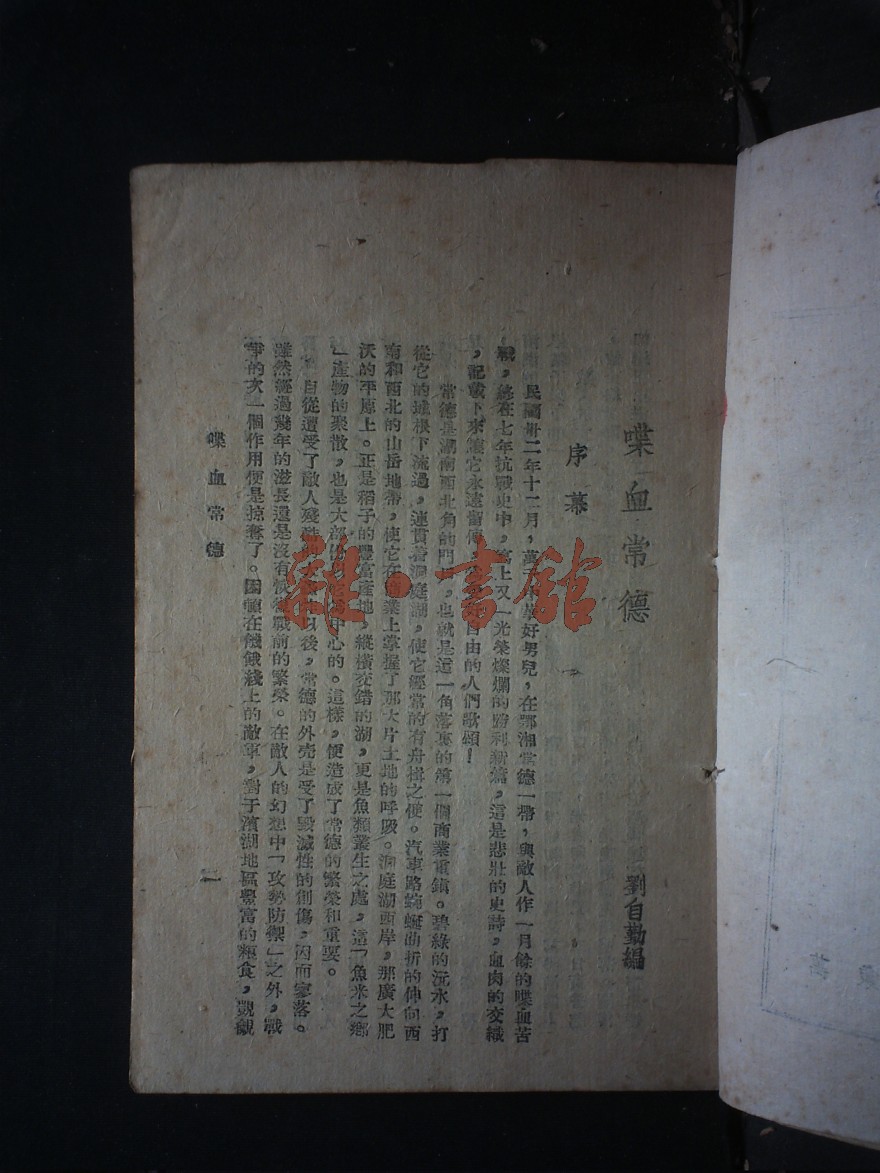 喋血常德
劉自勤編
序幕
民國卅二年十二月，萬千中華好男兒，在鄂湘常德一帶，與敵人作一月餘的喋血苦
戰，終在七年抗戰史中，寫上又一光榮燦爛的勝利新篇，這是悲壯的史詩，血肉的交織
，記載下來讓它永遠留傳，自由的人們歌頌！
常德是湖南西北角的門，也就是這一角落裏的第一個商業重鎮。碧綠的沅水，打
從它的城根下流過，連貫着洞庭湖，使它經常的有舟楫之便。汽車路蜿蜒曲折的伸向西
南和西北的山岳地帶，使它在商業上掌握了那大片土地的呼吸。洞庭湖西岸，那廣大肥
沃的平原上。正是稻子的豐富產地，縱橫交錯的湖，更是魚類叢生之處，這「魚米之鄉
」產物的聚散，也是大部份中心的。這樣，便造成了常德的繁榮和重要。
自從遭受了敵人殘酷以後，常德的外壳是受了毀滅性的創傷，因而寥落。
雖然經過幾年的滋長還是沒有恢復戰前的繁榮。在敵人的幻想中「攻勢防禦」之外，戰
爭的次一個作用便是掠奪了。困頓在饑餓綫上的敵軍，對于濱湖地區豐富的糧食，覬覦
喋血常德
一
雜·書館